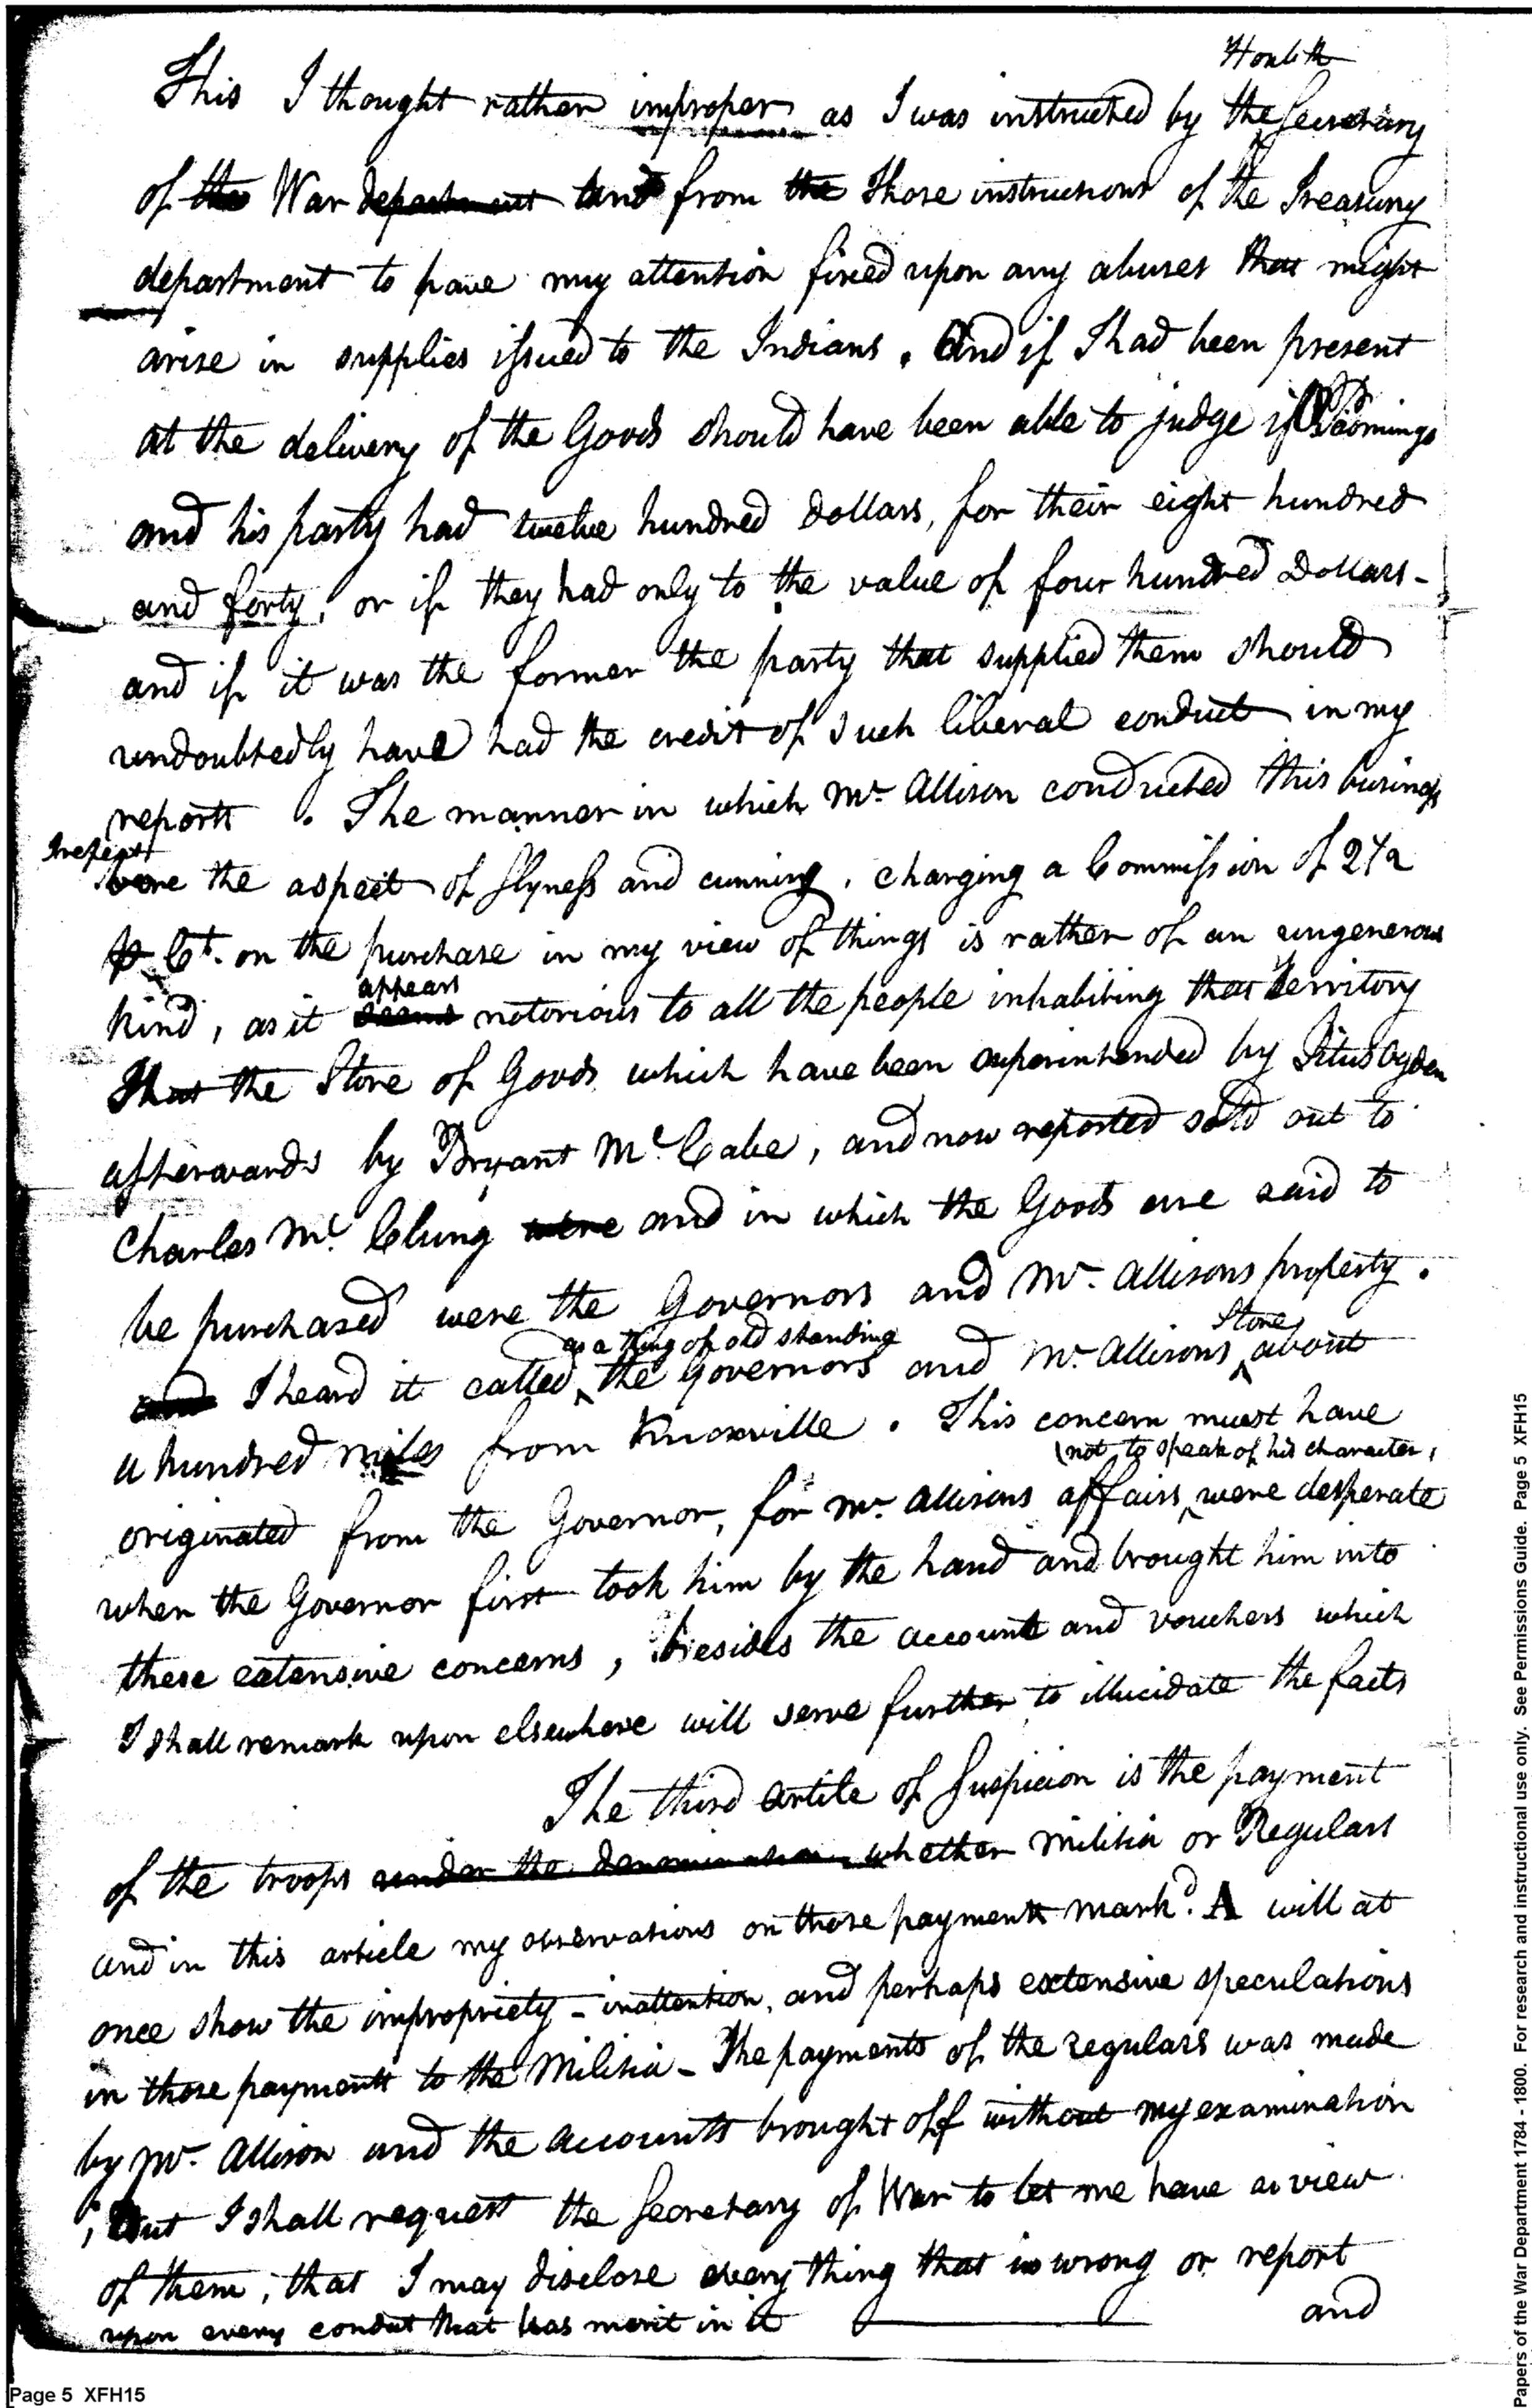 Honble
This I thought rather improper as I was instructed by the Secretary
of the War department and from the those instructions of the Treasury
department to have my attention fixed upon any abuses that might
arise in supplies issued to the Indians. And if I had been present
at the delivery of the Goods should have been able to judge if Piomingo
and his party had twelve hundred dollars, for their eight hundred
and forty, or if they had only to the value of four hundred Dollars -
and if it was the former the party that supplied them should
undoubtedly have had the credit of such liberal conduct in my
reports. The manner in which Mr. Allison conducted this business
I repeat
bore the aspect of slyness and cunning, charging a Commission of 2 1/2
P Ct. on the purchase in my view of things is rather of an ungenerous
appears
kind, as it seems notorious to all the people inhabiting that territory
That the Store of Goods which have been superintended by Titus Ogden
afterwards by Bryant Mc Cabe, and now reported sold out to
Charles Mc Clung were and in which the Goods are said to
be purchased were the Governors and Mr. Allisons property.
as a thing of old standing Store
and I heard it called the Governors and Mr. Allisons about
a hundred miles from Knoxville. This concern must have
(not to speak of his character,
originated from the Governor, for Mr. Allisons affairs were desperate
when the Governor first took him by the hand and brought him into
these extensive concerns, besides the account and vouchers which
I shall remark upon elsewhere will serve further to illucidate the facts
The third artile of Suspicion is the payment
of the troops under the denomination whether Militia or Regulars
and in this article my observations on those payments mark.d A will at
once show the impropriety - inattention, and perhaps extensive speculations
in those payments to the Militia - The payments of the regulars was made
by Mr. Allison and the accounts brought off without my examination
; But I shall request the Secretary of War to let me have a view
of them, that I may disclose every thing that is wrong or report
upon every conduct that has merit in it and
Page 5 XFH15
Papers of the War Department 1784 - 1800. For research and instructional use only. See Permissions Guide. Page 5 XFH15